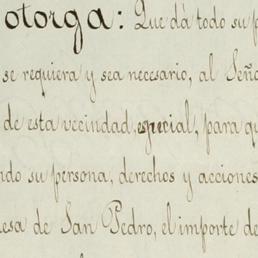 otorga: Que dà todo su p
se requiera y sea necesario, al Seño
de esta vecindad, especial, para qu
ndo su persona, derechos y acciones
esa de San Pedro, el importe de